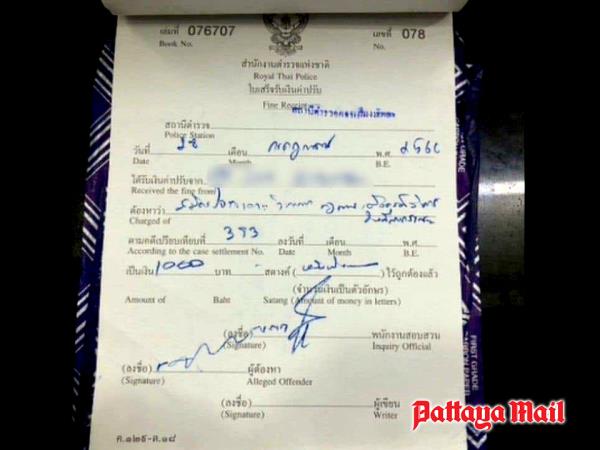 เล่มที่ 076707 เลขที่ 078
Book No. No.
สำนักงานตำรวจแห่งชาติ
Royal Thai Police
ใบเสร็จรับเงินค่าปรับ
Fine Receipt
สถานีตำรวจ
Police Station
วันที่ เดือน กรกฎาคม พ.ศ.
Date Month B.E.
ได้รับเงินค่าปรับจาก
Received the fine from
ต้องหาว่า
Charged of
ตามคดีเปรียบเทียบที่ 393 ลงวันที่ เดือน พ.ศ.
According to the case settlement No. Date Month B.E.
เป็นเงิน 1000 บาท สตางค์ ( ) ไว้ถูกต้องแล้ว
(จำนวนเงินเป็นตัวอักษร)
Amount of Baht Satang (Amount of money in letters)
(ลงชื่อ) พนักงานสอบสวน
(Signature) Inquiry Official
(ลงชื่อ) ผู้ต้องหา
(Signature) Alleged Offender
(ลงชื่อ) ผู้เขียน
(Signature) Writer
ค.๑๒๕-ต.๑๘
FIRST GRADE
Pattaya Mail